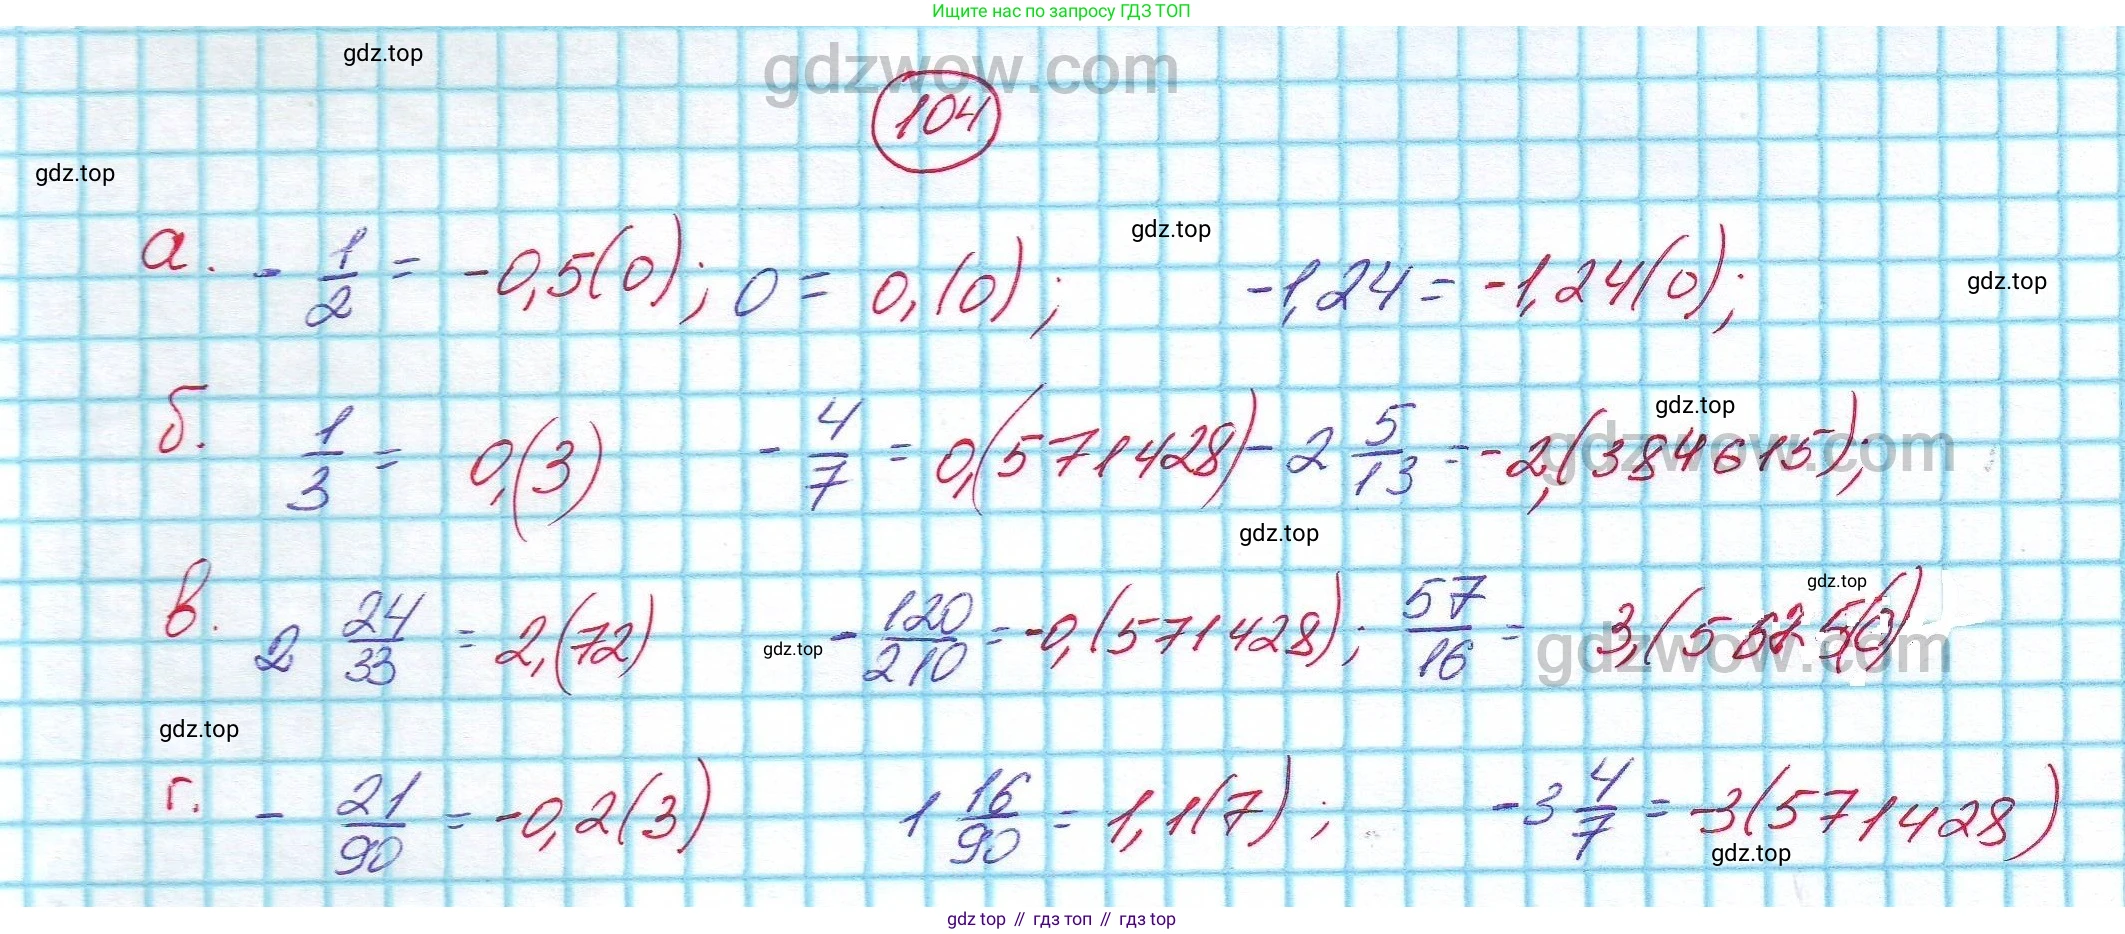 Ищите нас по запросу ГДЗ ТОП
gdz.top
gdzwow.com
104
gdz.top
gdz.top
а. - 1/2 = -0,5(0); 0 = 0,(0); -1,24 = -1,24(0);
gdz.top
gdz.top
б. 1/3 = 0,(3) - 4/7 = 0,(571428) - 2 5/13 = -2,(384615);
gdzwow.com
gdz.top
gdz.top
в. 2 24/33 = 2,(72) - 120/210 = -0,(571428); 57/16 = 3,(5625(0)
gdz.top
gdzwow.com
gdz.top
г. - 21/90 = -0,2(3) 1 16/90 = 1,1(7); -3 4/7 = -3(571428)
gdz.top
gdz.top // гдз топ // гдз.top